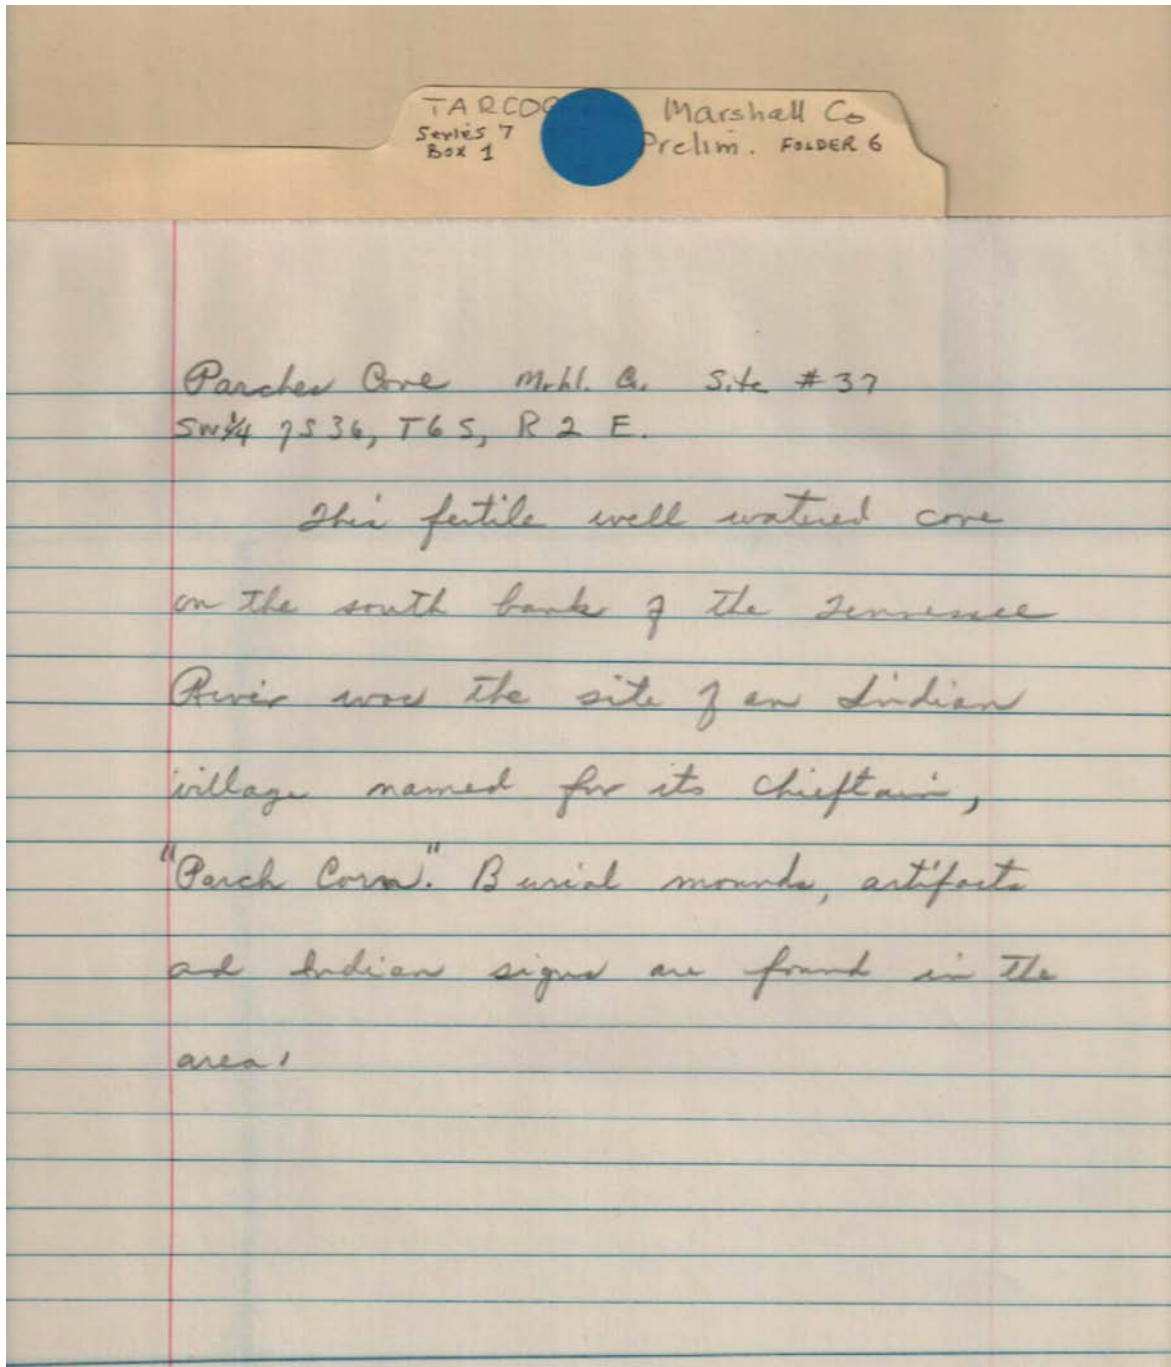 TARCOG Marshall Co
Series 7 Prelim. FOLDER 6
Box 1
Parches Cove Mrhl. Co. Site #37
SW¼ of S36, T6S, R2E.
This fertile well watered cove
on the south bank of the Tennessee
River was the site of an Indian
village named for its chieftain,
"Parch Corn." Burial mounds, artifacts
ad Indian signs are found in the
area.